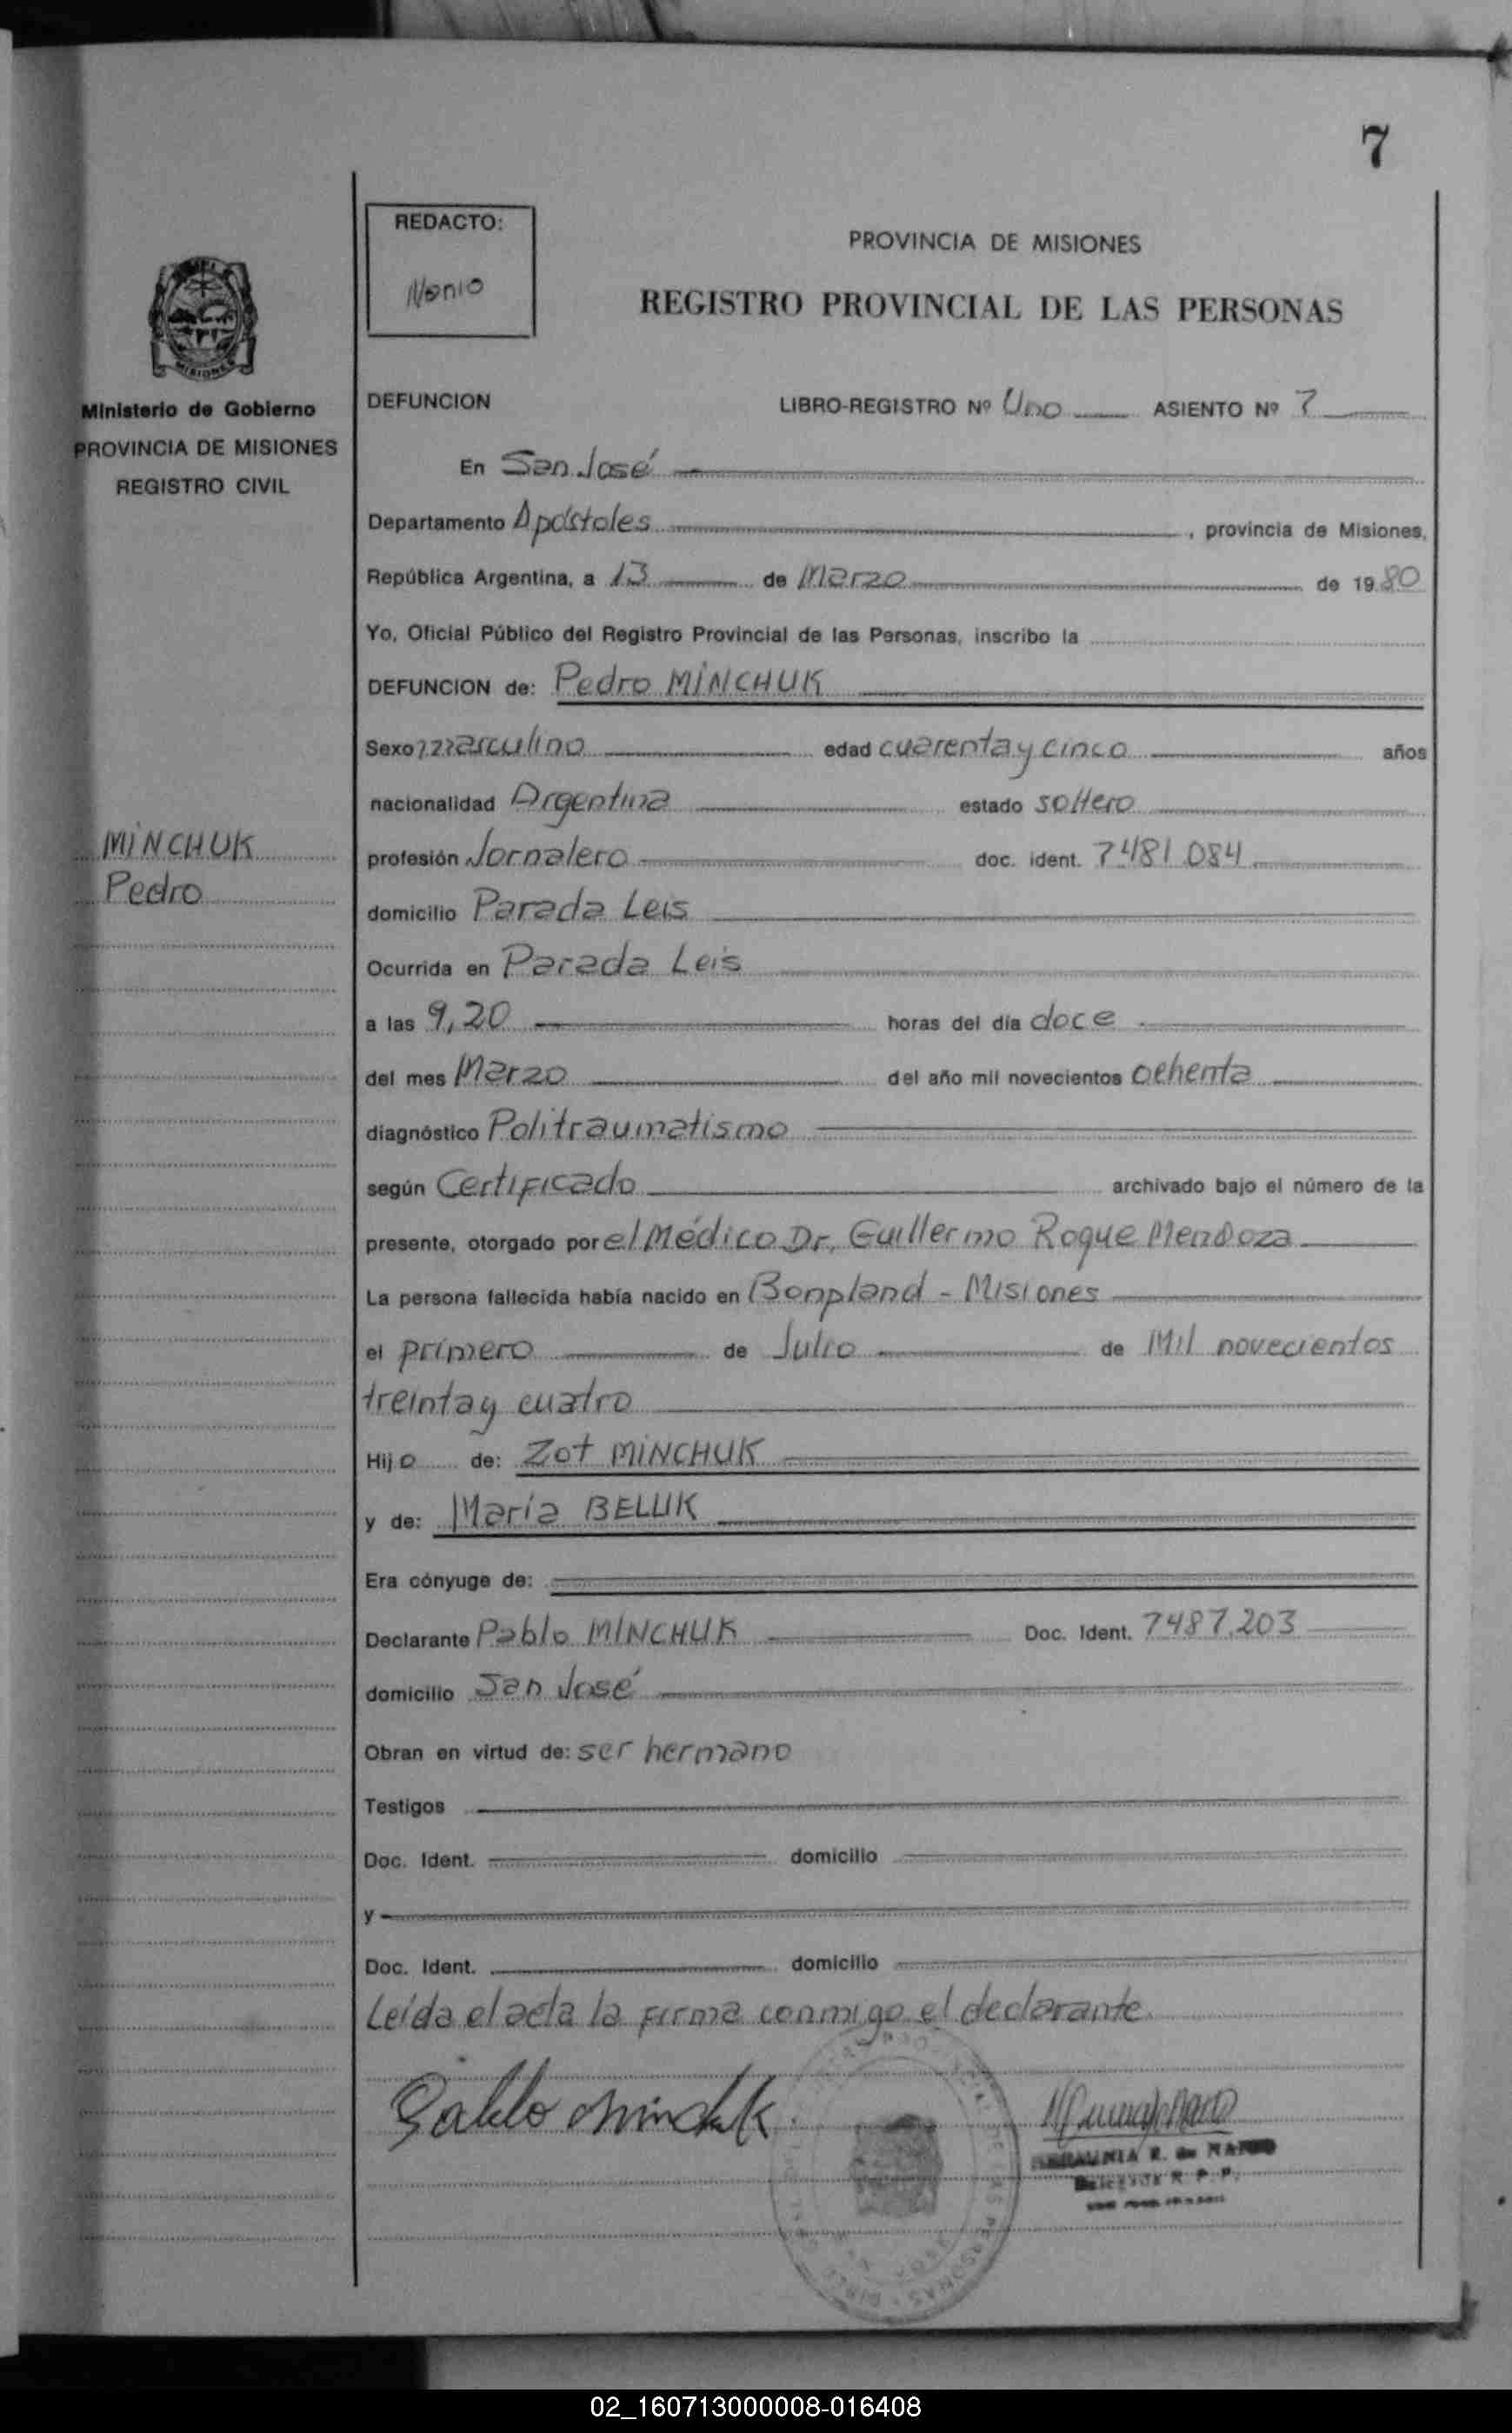 7
REDACTO:
Nonio
PROVINCIA DE MISIONES
REGISTRO PROVINCIAL DE LAS PERSONAS
MISIONES
Ministerio de Gobierno
PROVINCIA DE MISIONES
REGISTRO CIVIL
DEFUNCION LIBRO-REGISTRO Nº Uno ASIENTO Nº 7
En San José
Departamento Apóstoles, provincia de Misiones,
República Argentina, a 13 de Marzo de 1980
Yo, Oficial Público del Registro Provincial de las Personas, inscribo la
DEFUNCION de: Pedro MINCHUK
Sexo masculino edad cuarenta y cinco años
nacionalidad Argentina estado soltero
MINCHUK
Pedro
profesión Jornalero doc. ident. 7481.084
domicilio Parada Leis
Ocurrida en Parada Leis
a las 9,20 horas del día doce
del mes Marzo del año mil novecientos ochenta
diagnóstico Politraumatismo
según Certificado archivado bajo el número de la
presente, otorgado por el Médico Dr. Guillermo Roque Mendoza
La persona fallecida había nacido en Bonpland - Misiones
el primero de Julio de Mil novecientos
treinta y cuatro
Hijo de: Zot MINCHUK
y de: María BELUK
Era cónyuge de:
Declarante Pablo MINCHUK Doc. Ident. 7487.203
domicilio San José
Obran en virtud de: ser hermano
Testigos
Doc. Ident. domicilio
y
Doc. Ident. domicilio
Leída el acta la firma conmigo el declarante
Pablo Minchuk
R. de
R. P. P.
02_160713000008-016408